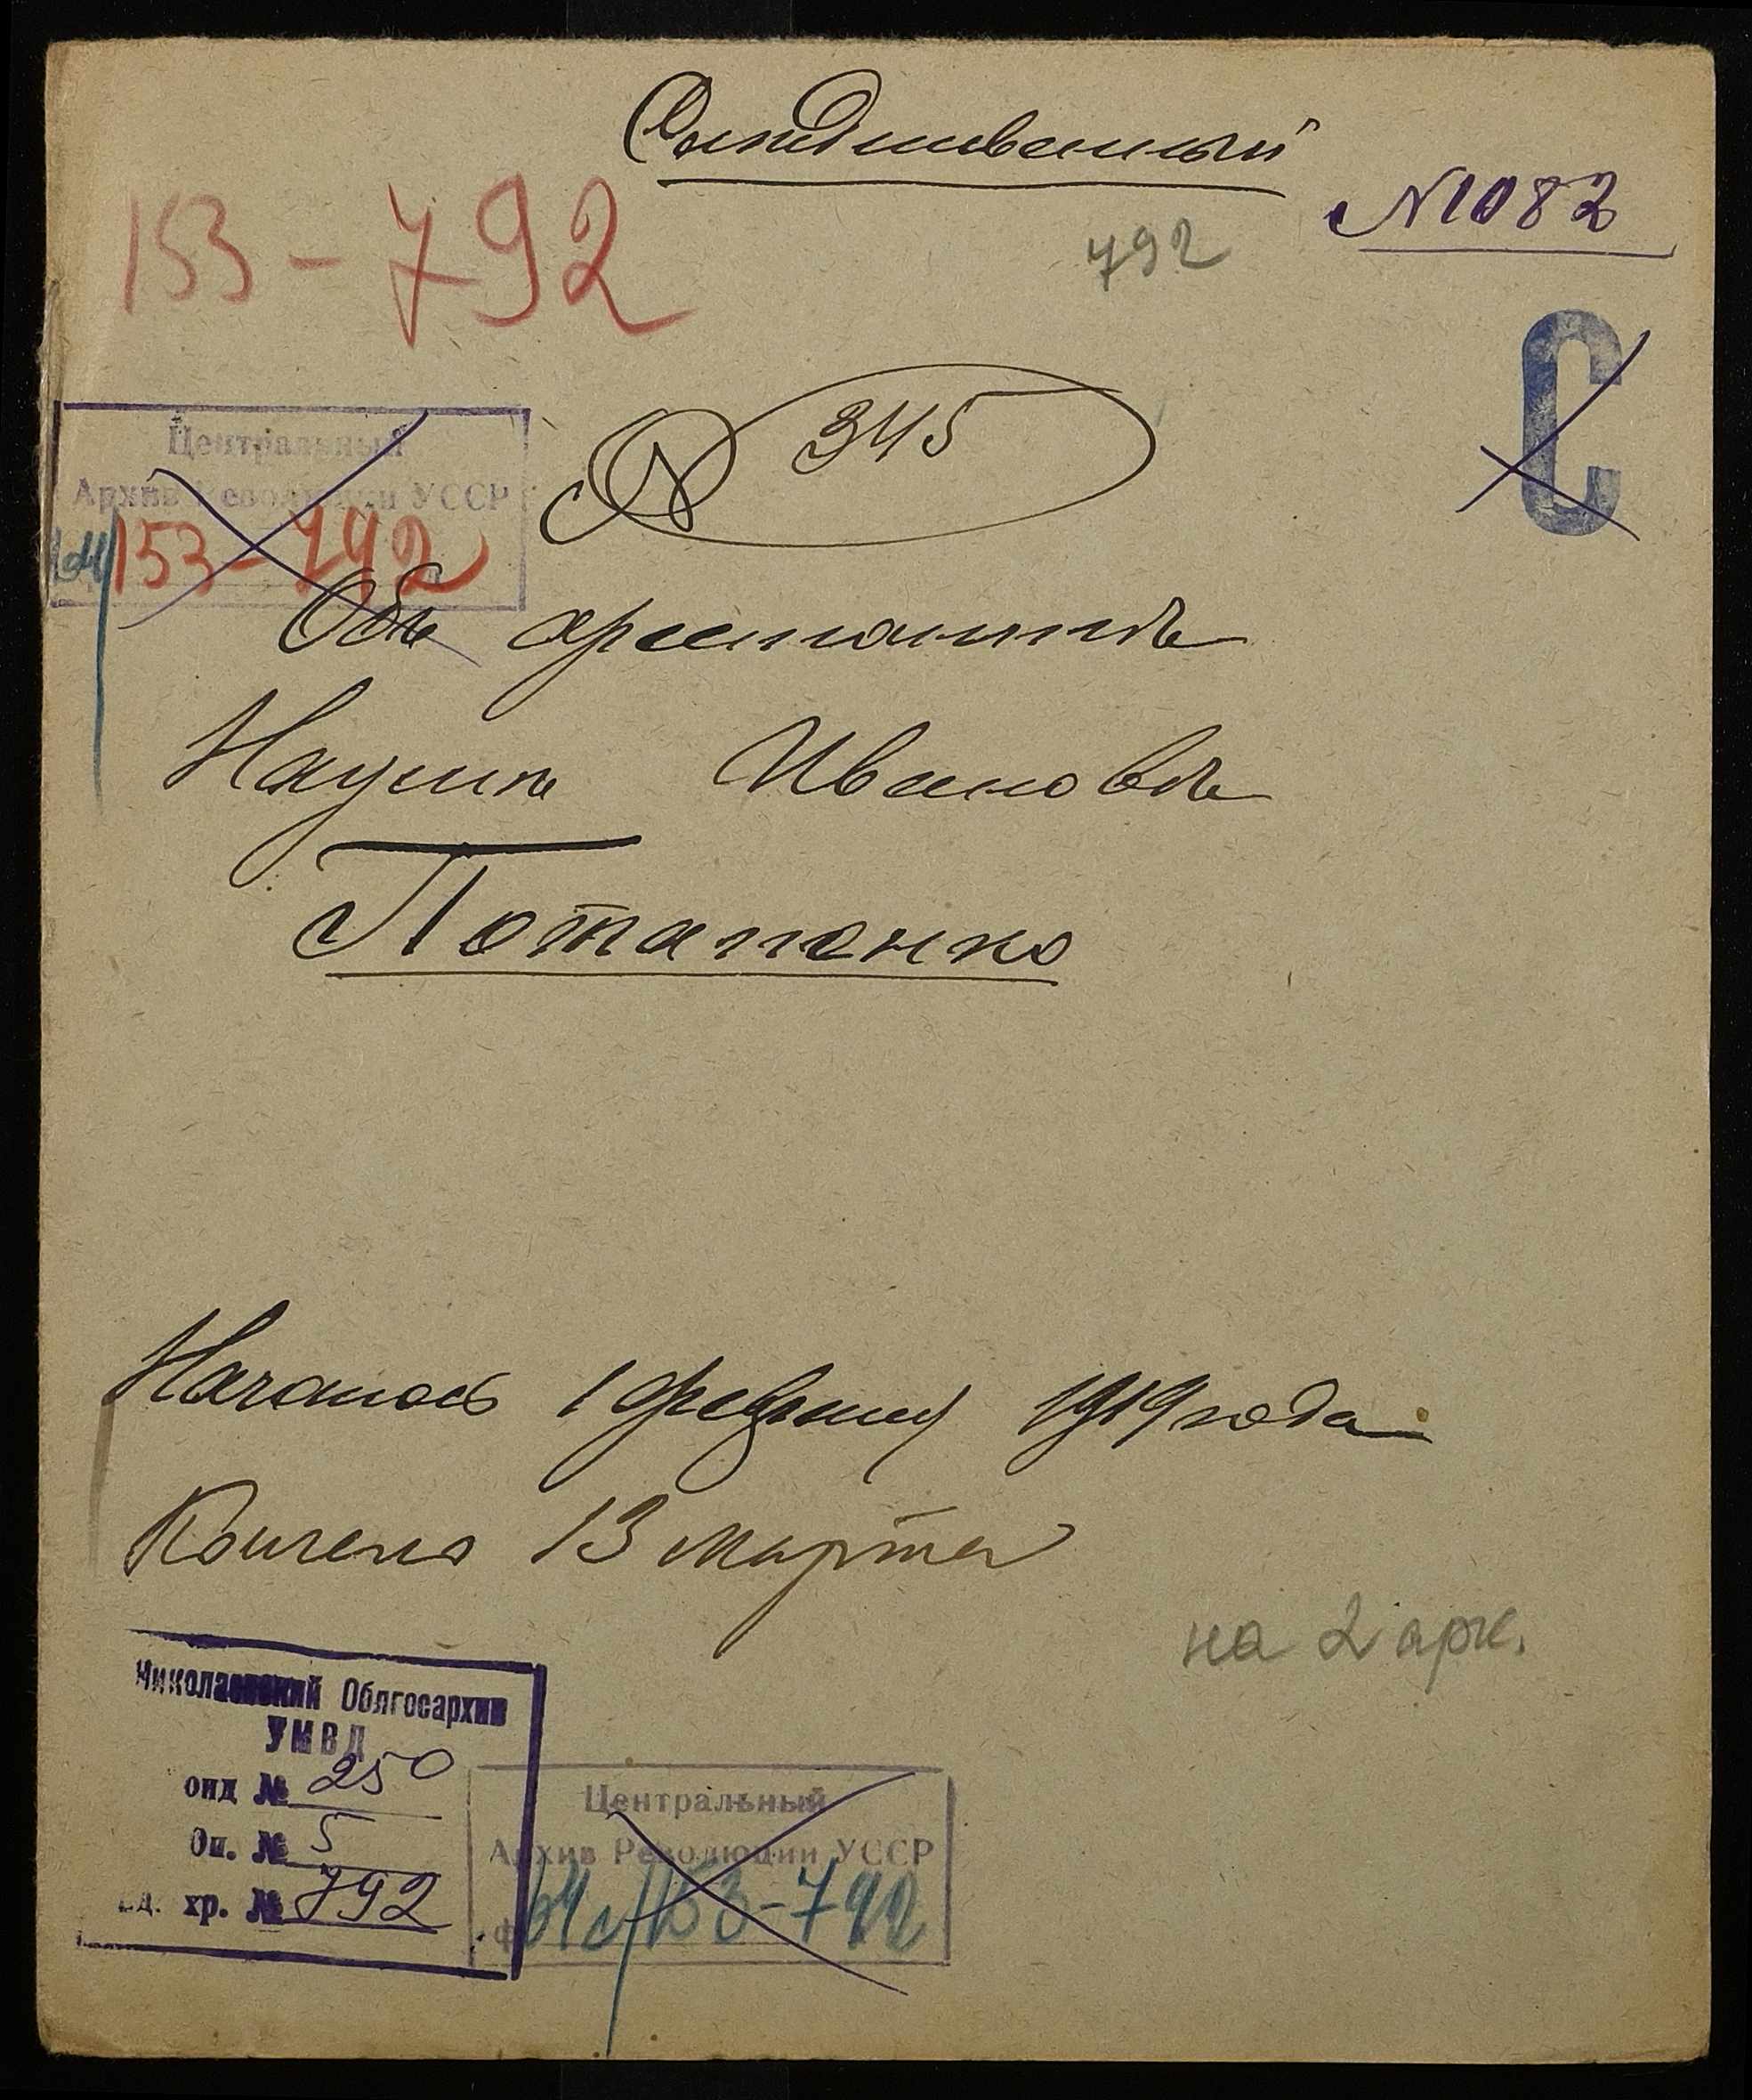 Слѣдственный
№ 1082
153-792
792
№ 345
С
Центральный
Архив Революции УССР
153-792
Объ арестантѣ
Наумѣ Ивановѣ
Потапенко
Началось 1 февраля 1919 года
Кончено 13 марта
на 2 арк.
Николаевский Облгосархив
УМВД
онд № 250
Оп. № 5
ед. хр. № 792
Центральный
Архив Революции УССР
ф 64с/153-792